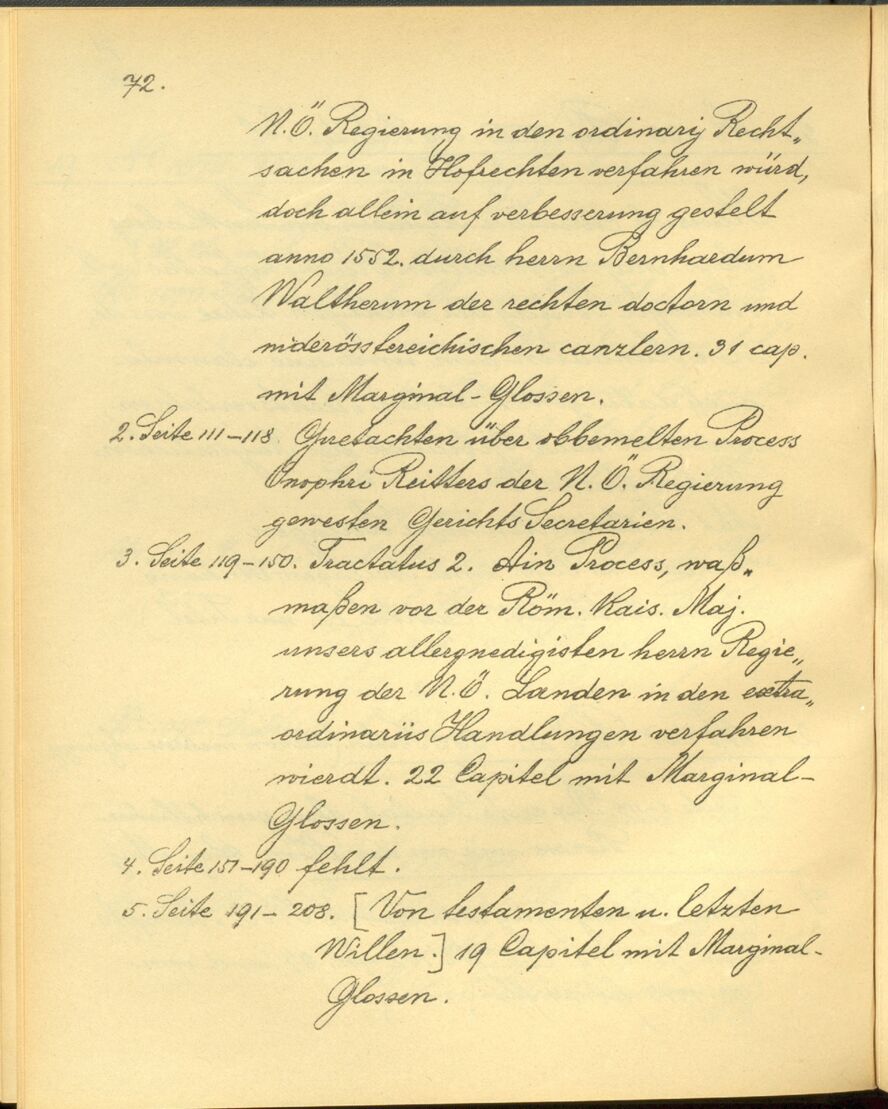 72.
N.Ö. Regierung in den ordinarij Recht„
sachen in Hofrechten verfahren würd,
doch allein auf verbesserung gestelt
anno 1552. durch herrn Bernhardum
Waltherum der rechten doctorn und
niderösstereichischen canzlern. 31 cap.
mit Marginal-Glossen.
2. Seite 111–118. Guetachten über obbemelten Process
Onophri Reitters der N.Ö. Regierung
gewesten Gerichts Secretarien.
3. Seite 119–150. Tractatus 2. Ain Process, waß„
maßen vor der Röm. Kais. Maj.
unsers allergnedigisten herrn Regie„
rung der N.Ö. Landen in den extra„
ordinariis Handlungen verfahren
wierdt. 22 Capitel mit Marginal-
Glossen.
4. Seite 151–190 fehlt.
5. Seite 191–208. [Von testamenten u. letzten
Willen.] 19 Capitel mit Marginal-
Glossen.